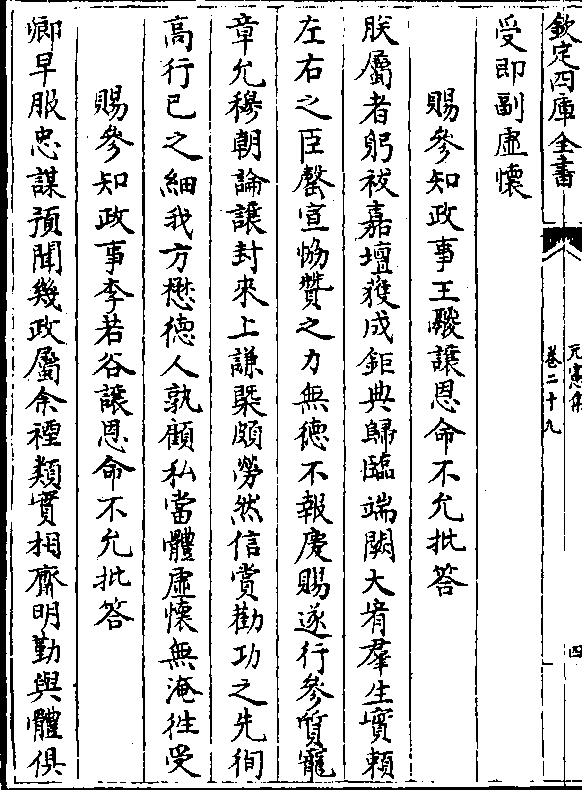 欽定四庫全書
元憲集
卷二十九
四
受即副虛懷
賜參知政事王鬷讓恩命不允批答
朕屬者躬祓嘉壇獲成鉅典歸臨端闕大賚羣生實頼
左右之臣罄宣恊贊之力無德不報慶賜遂行參質寵
章允穆朝論讓封來上謙槩頗勞然信賞勸功之先徇
高行已之細我方懋德人孰顧私當體虛懷無淹徃受
賜參知政事李若谷讓恩命不允批答
卿早服忠謀預聞幾政屬余禋類實相齋明勤與體俱